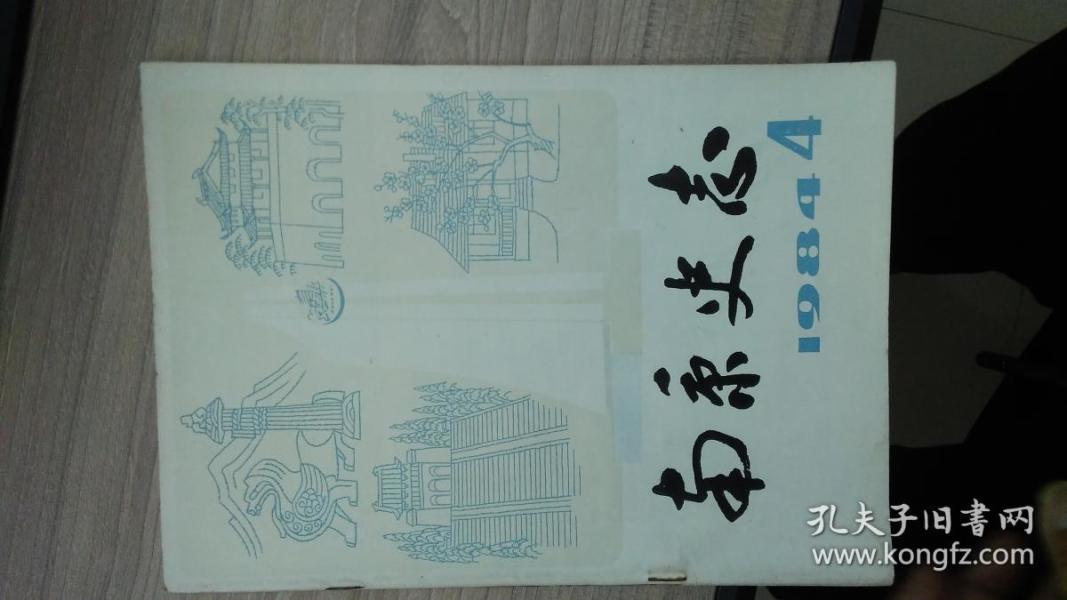 南京史志
1984 4
孔夫子旧書网
www.kongfz.com